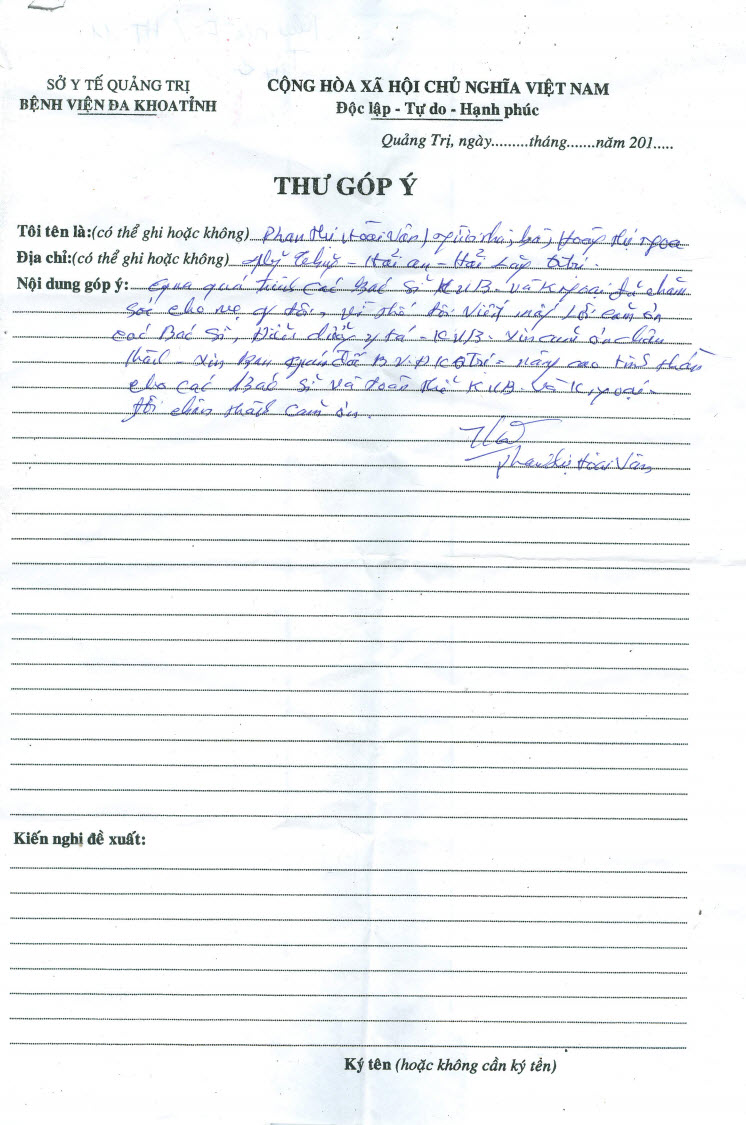 SỞ Y TẾ QUẢNG TRỊ
BỆNH VIỆN ĐA KHOA TỈNH
CỘNG HÒA XÃ HỘI CHỦ NGHĨA VIỆT NAM
Độc lập - Tự do - Hạnh phúc
Quảng Trị, ngày.........tháng.......năm 201.....
THƯ GÓP Ý
Tôi tên là:(có thể ghi hoặc không) Phan Thị Hoài Vân, người nhà, bà, Hoàng Thị Ngoa
Địa chỉ:(có thể ghi hoặc không) Mỹ Thủy - Hải An - Hải Lăng QTrị.
Nội dung góp ý: Qua quá trình các Bác Sĩ K.U.B. và K ngoại đã chăm
sóc cho mẹ tôi, vì thế tôi viết mấy lời cảm ơn
các Bác Sĩ, Điều dưỡng y tá - K.U.B. xin cảm ơn chân
thành - xin Ban B.V.Đ.K.QTrị - nâng cao tinh thần
cho các Bác Sĩ và toàn thể K.U.B. và K ngoại -
tôi chân thành cảm ơn.
Phan Thị Hoài Vân
Kiến nghị đề xuất:
Ký tên (hoặc không cần ký tên)